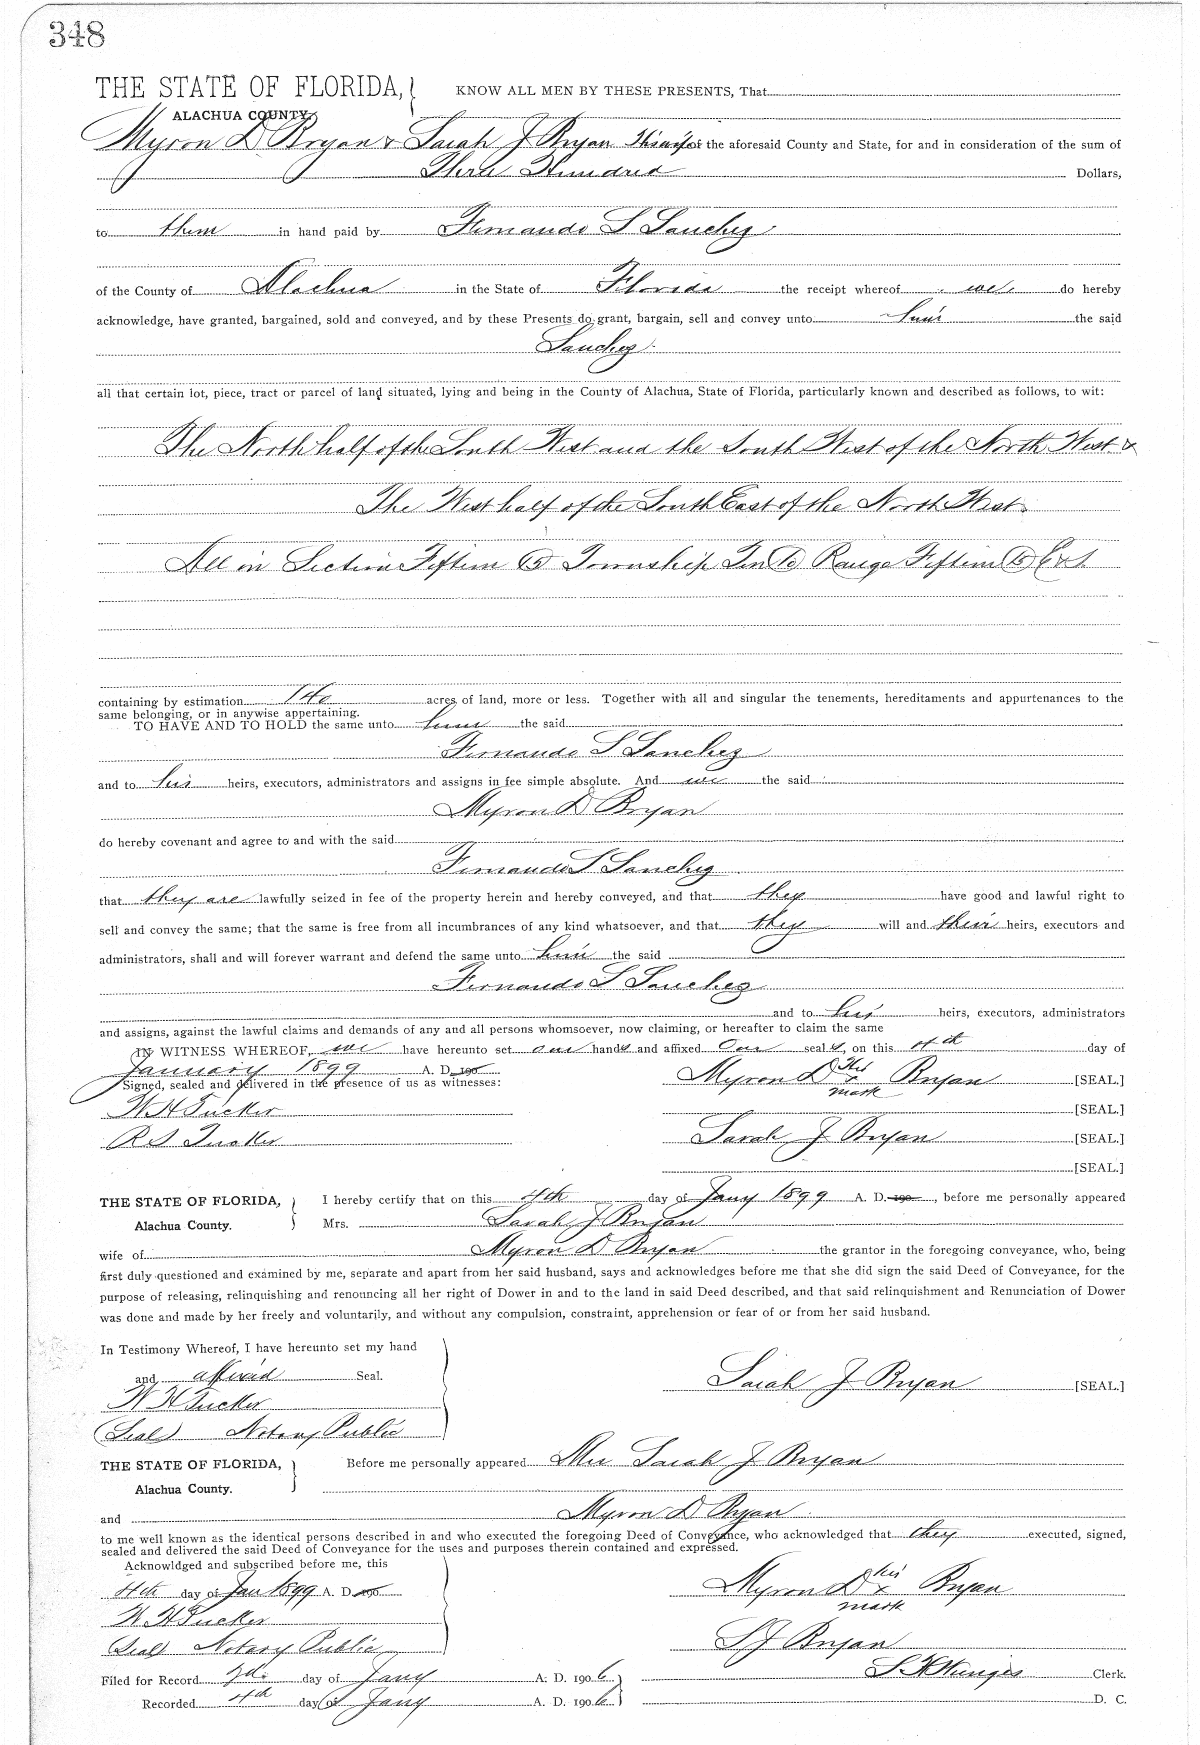 348
THE STATE OF FLORIDA, KNOW ALL MEN BY THESE PRESENTS, That
ALACHUA COUNTY,
Myron D Bryan & Sarah J Bryan of the aforesaid County and State, for and in consideration of the sum of
Three Hundred Dollars,
to them in hand paid by Fernando S Sanchez
of the County of Alachua in the State of Florida the receipt whereof we do hereby
acknowledge, have granted, bargained, sold and conveyed, and by these Presents do grant, bargain, sell and convey unto him the said
Sanchez
all that certain lot, piece, tract or parcel of land situated, lying and being in the County of Alachua, State of Florida, particularly known and described as follows, to wit:
The North half of the South West and the South West of the North West &
The West half of the South East of the North West
All in Section Fifteen (15) Township Ten (10) Range Fifteen (15)
containing by estimation 140 acres of land, more or less. Together with all and singular the tenements, hereditaments and appurtenances to the
same belonging, or in anywise appertaining.
TO HAVE AND TO HOLD the same unto him the said
Fernando S Sanchez
and to his heirs, executors, administrators and assigns in fee simple absolute. And we the said
Myron D Bryan
do hereby covenant and agree to and with the said
Fernando S Sanchez
that they are lawfully seized in fee of the property herein and hereby conveyed, and that they have good and lawful right to
sell and convey the same; that the same is free from all incumbrances of any kind whatsoever, and that they will and their heirs, executors and
administrators, shall and will forever warrant and defend the same unto him the said
Fernando S Sanchez
and to his heirs, executors, administrators
and assigns, against the lawful claims and demands of any and all persons whomsoever, now claiming, or hereafter to claim the same
IN WITNESS WHEREOF, we have hereunto set our hands and affixed Our seals, on this 4th day of
January 1899 A. D. 190 Myron D His x mark Bryan [SEAL.]
Signed, sealed and delivered in the presence of us as witnesses:
W H Tucker [SEAL.]
R S Tucker Sarah J Bryan [SEAL.]
[SEAL.]
THE STATE OF FLORIDA, I hereby certify that on this 4th day of Jany 1899 A. D. 190 , before me personally appeared
Alachua County. Mrs. Sarah J Bryan
wife of Myron D Bryan the grantor in the foregoing conveyance, who, being
first duly questioned and examined by me, separate and apart from her said husband, says and acknowledges before me that she did sign the said Deed of Conveyance, for the
purpose of releasing, relinquishing and renouncing all her right of Dower in and to the land in said Deed described, and that said relinquishment and Renunciation of Dower
was done and made by her freely and voluntarily, and without any compulsion, constraint, apprehension or fear of or from her said husband.
In Testimony Whereof, I have hereunto set my hand
and affixed Seal. Sarah J Bryan [SEAL.]
W H Tucker
(Seal) Notary Public
THE STATE OF FLORIDA, Before me personally appeared Mrs Sarah J Bryan
Alachua County.
and Myron D Bryan
to me well known as the identical persons described in and who executed the foregoing Deed of Conveyance, who acknowledged that they executed, signed,
sealed and delivered the said Deed of Conveyance for the uses and purposes therein contained and expressed.
Acknowldged and subscribed before me, this
4th day of Jan 1899 A. D. 190 Myron D his x mark Bryan
W H Tucker
(Seal) Notary Public S J Bryan
Filed for Record 2d. day of Jany A. D. 1906 Clerk.
Recorded 4th day of Jany A. D. 1906 D. C.